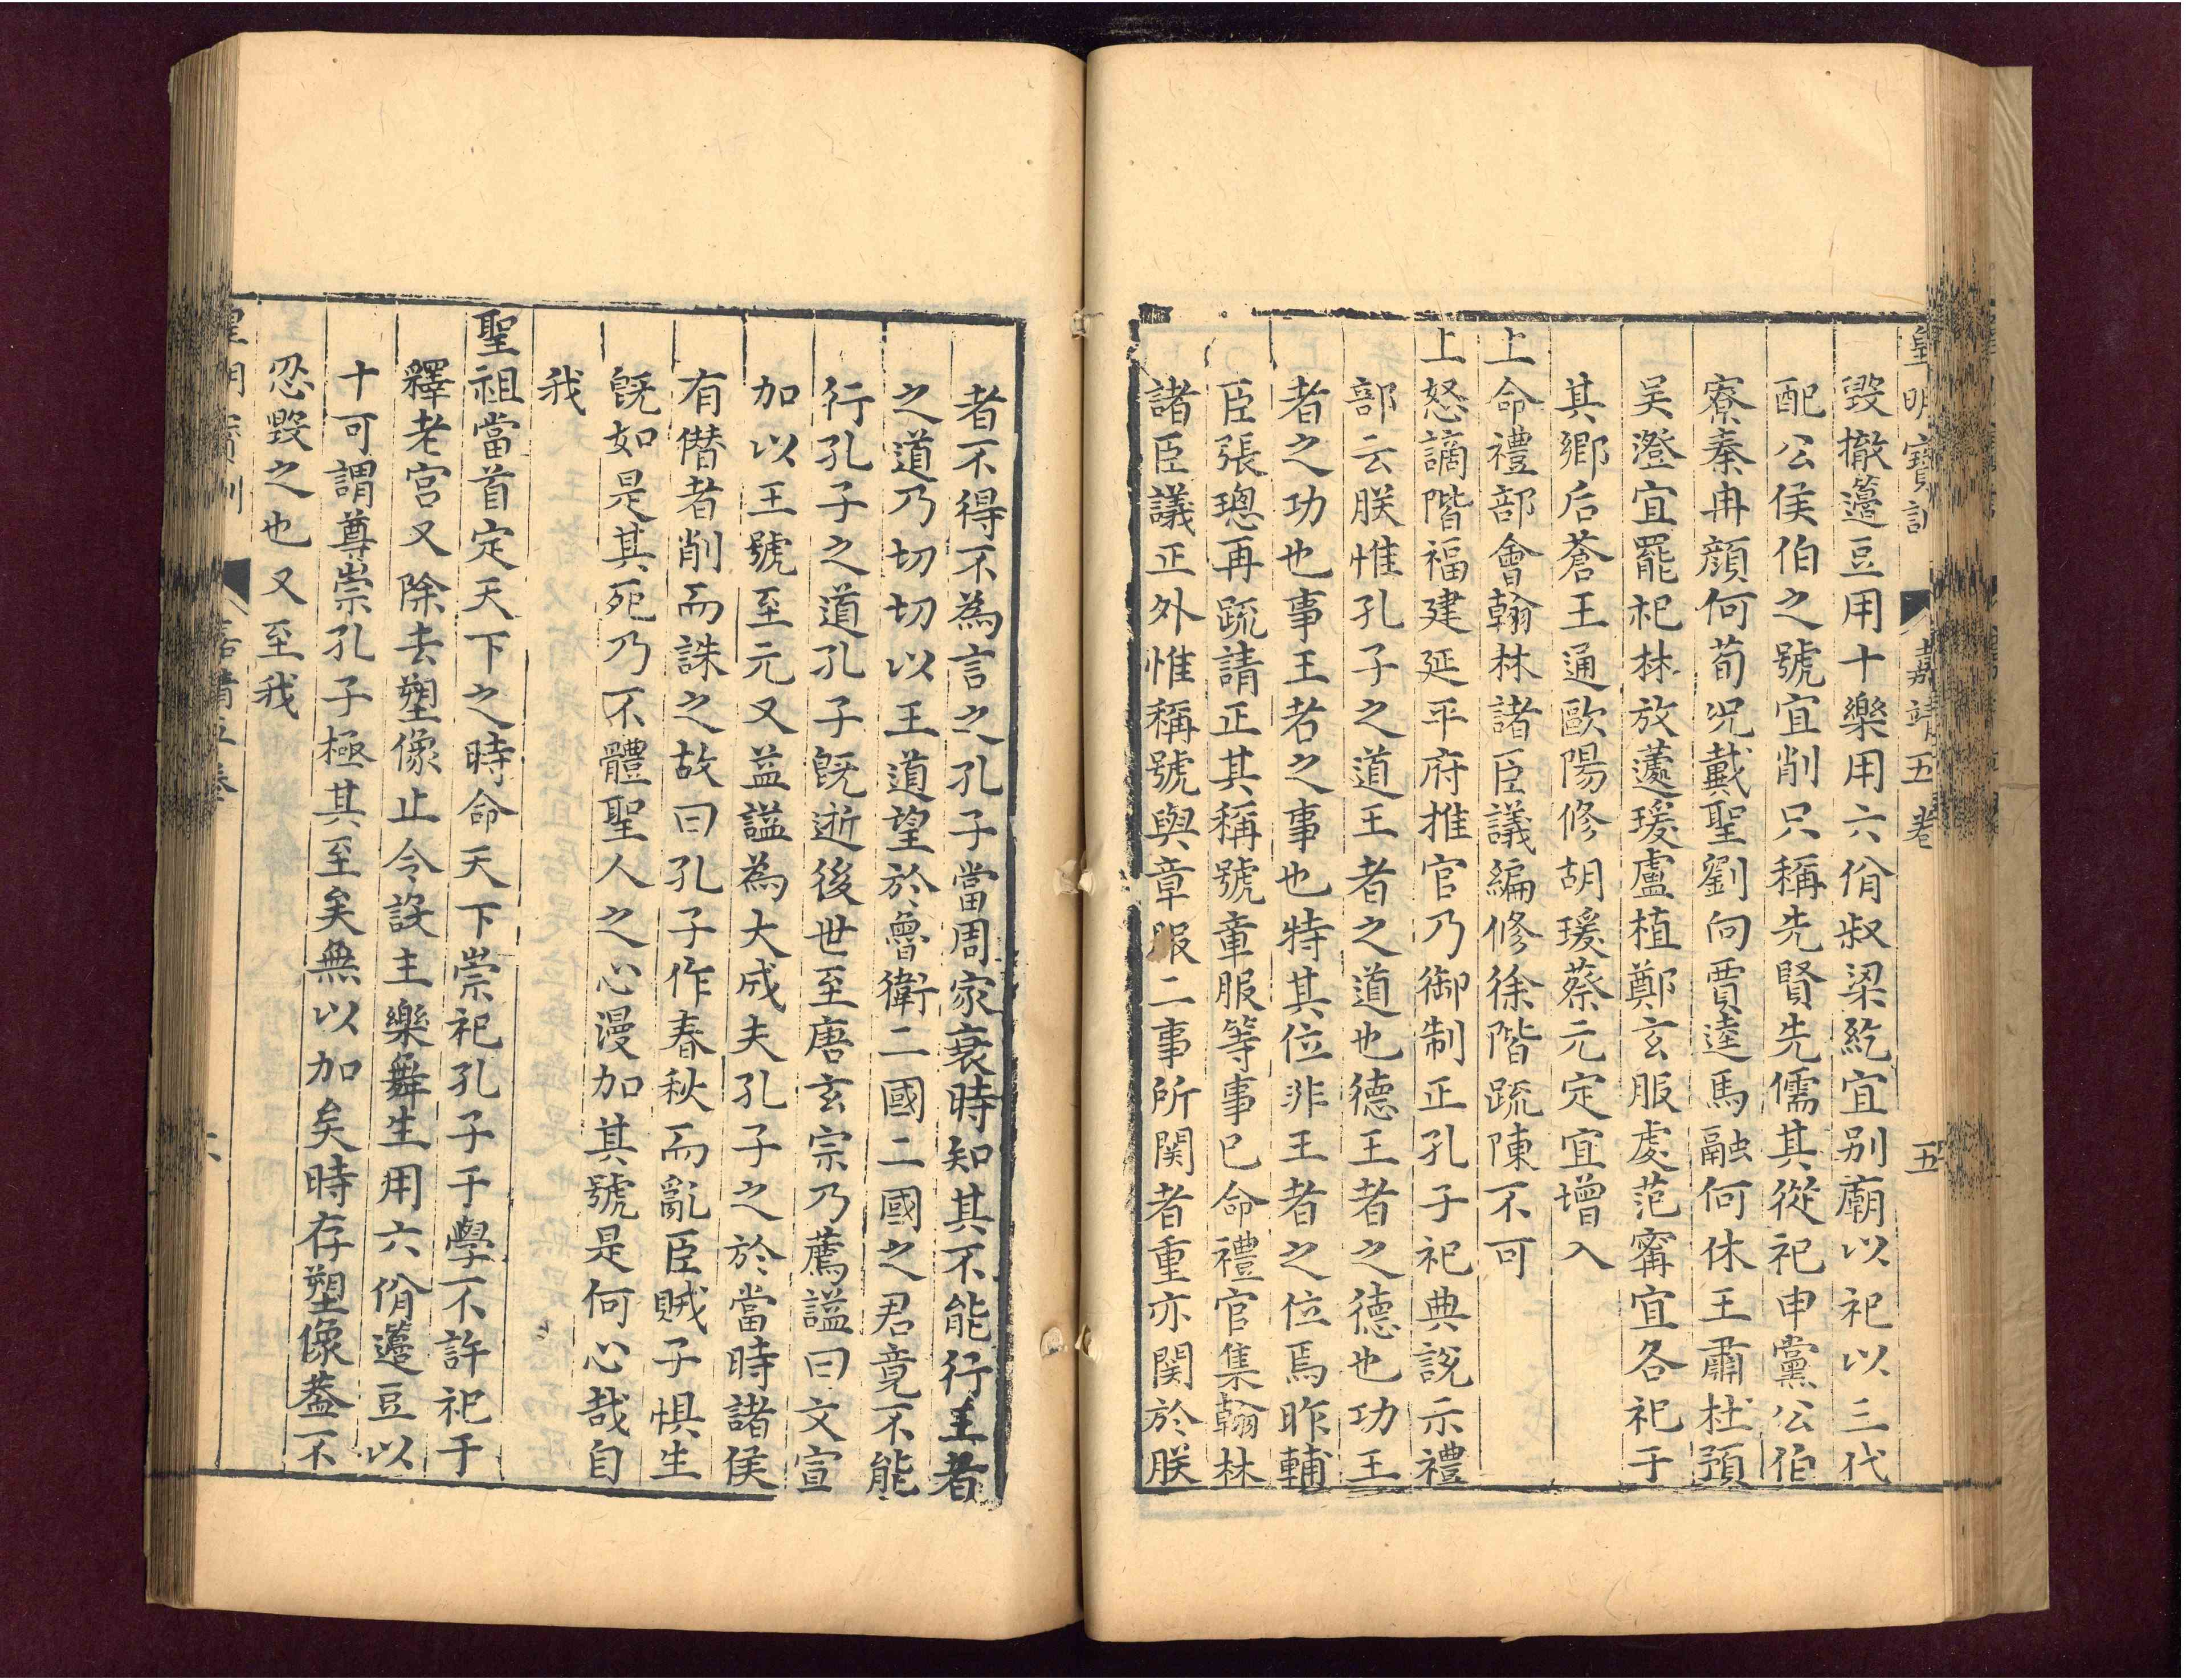 皇明寶訓 嘉靖五卷 五
毀撤籩豆用十樂用六佾叔梁紇宜别廟以祀以三代
配公侯伯之號宜削只稱先賢先儒其從祀申黨公伯
寮秦冉顔何荀况戴聖劉向賈逵馬融何休王肅杜預
吴澄宜罷祀林放蘧瑗盧植鄭玄服虔范甯宜各祀于
其鄉后蒼王通歐陽修胡瑗蔡元定宜增入
上命禮部會翰林諸臣議編修徐階疏陳不可
上怒謫階福建延平府推官乃御制正孔子祀典說示禮
部云朕惟孔子之道王者之道也德王者之德也功王
者之功也事王者之事也特其位非王者之位焉昨輔
臣張璁再疏請正其稱號章服等事已命禮官集翰林
諸臣議正外惟稱號與章服二事所関者重亦関於朕
者不得不為言之孔子當周家衰時知其不能行王者
之道乃切切以王道望於魯衛二國二國之君竟不能
行孔子之道孔子既逝後世至唐玄宗乃薦謚曰文宣
加以王號至元又益謚為大成夫孔子之於當時諸侯
有僭者削而誅之故曰孔子作春秋而亂臣賊子惧生
既如是其死乃不體聖人之心漫加其號是何心哉自
我
聖祖當首定天下之時命天下崇祀孔子于學不許祀于
釋老宮又除去塑像止令設主樂舞生用六佾籩豆以
十可謂尊崇孔子極其至矣無以加矣時存塑像葢不
忍毀之也又至我